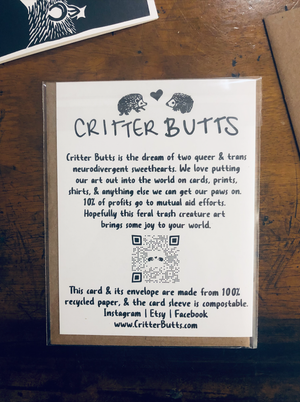 CRITTER BUTTS
Critter Butts is the dream of two queer & trans
neurodivergent sweethearts. We love putting
our art out into the world on cards, prints,
shirts, & anything else we can get our paws on.
10% of profits go to mutual aid efforts.
Hopefully this feral trash creature art
brings some joy to your world.
This card & its envelope are made from 100%
recycled paper, & the card sleeve is compostable.
Instagram | Etsy | Facebook
www.CritterButts.com